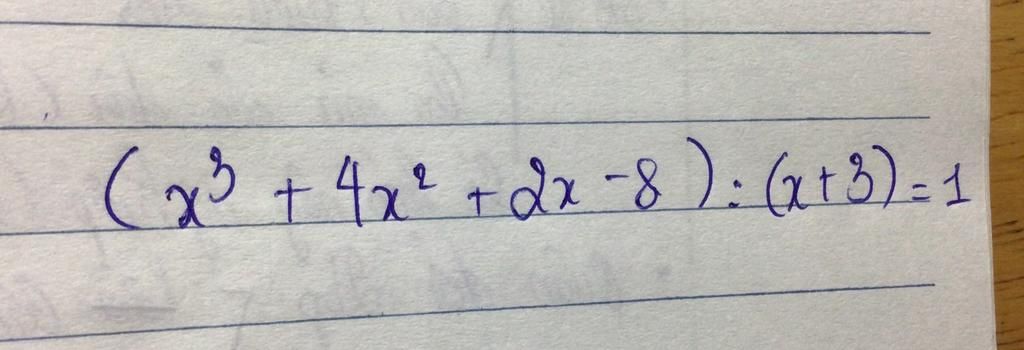 (x³ + 4x² + 2x - 8) : (x+3) = 1